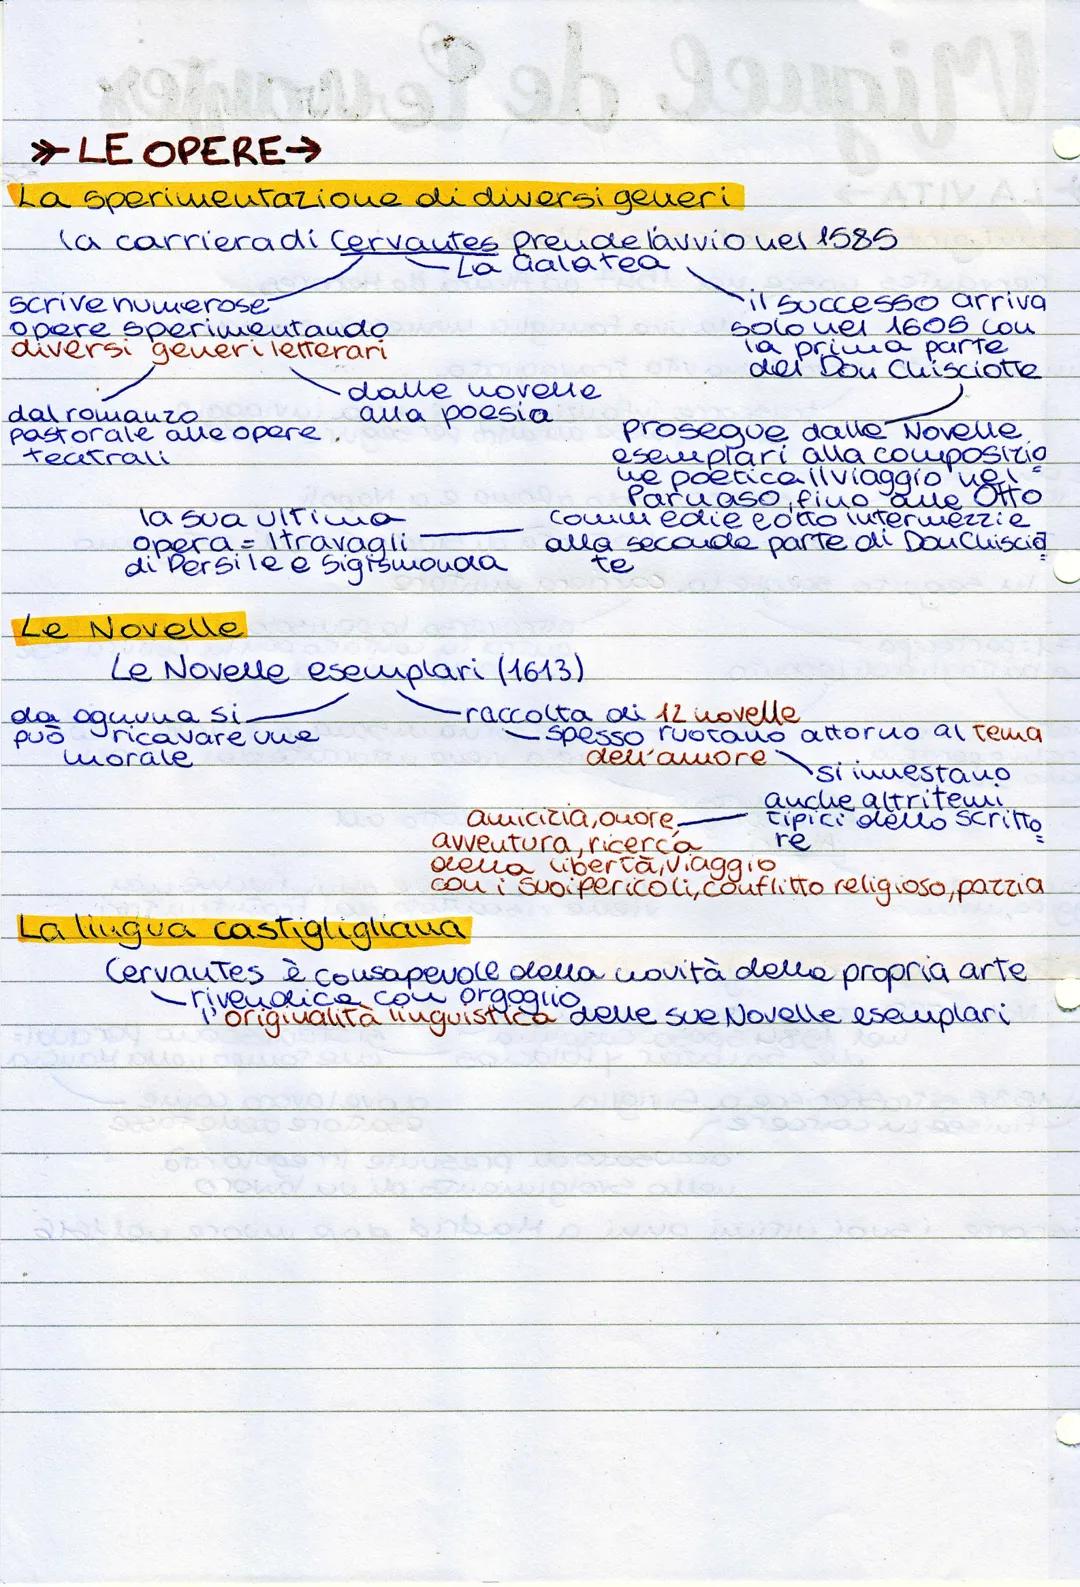 LE OPERE→
La sperimentazione di diversi generi
la carriera di Cervantes prende l'avvio nel 1585
La Galatea
scrive numerose
opere sperimentando
diversi generi letterari
il successo arriva
solo nel 1605 con
la prima parte
del Don Chisciotte
dal romanzo
pastorale alle opere
teatrali
dalle novelle
alla poesia
prosegue dalle Novelle
esemplari alla composizio
ne poetica il viaggio nel
Parnaso, fino alle Otto
commedie e otto intermezzi e
alla seconda parte di Don Chisciot
te
la sua ultima
opera = I travagli
di Persile e Sigismonda
Le Novelle
Le Novelle esemplari (1613)
da ognuna si
può ricavare una
morale
raccolta di 12 novelle
spesso ruotano attorno al tema
dell'amore
si innestano
anche altri temi
tipici dello scritto
re
amicizia, onore,
avventura, ricerca
della libertà, viaggio
con i suoi pericoli, conflitto religioso, pazzia
La lingua castigligliana
Cervantes è consapevole della novità della propria arte
rivendica con orgoglio
l'originalità linguistica delle sue Novelle esemplari